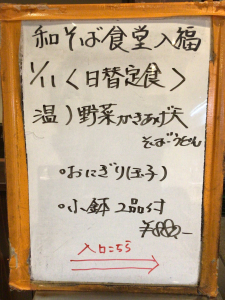 和そば食堂入福
1/11〈日替定食〉
温)野菜かきあげ天
そば・うどん
・おにぎり(玉子)
・小鉢 2品付
¥880-
入口こちら